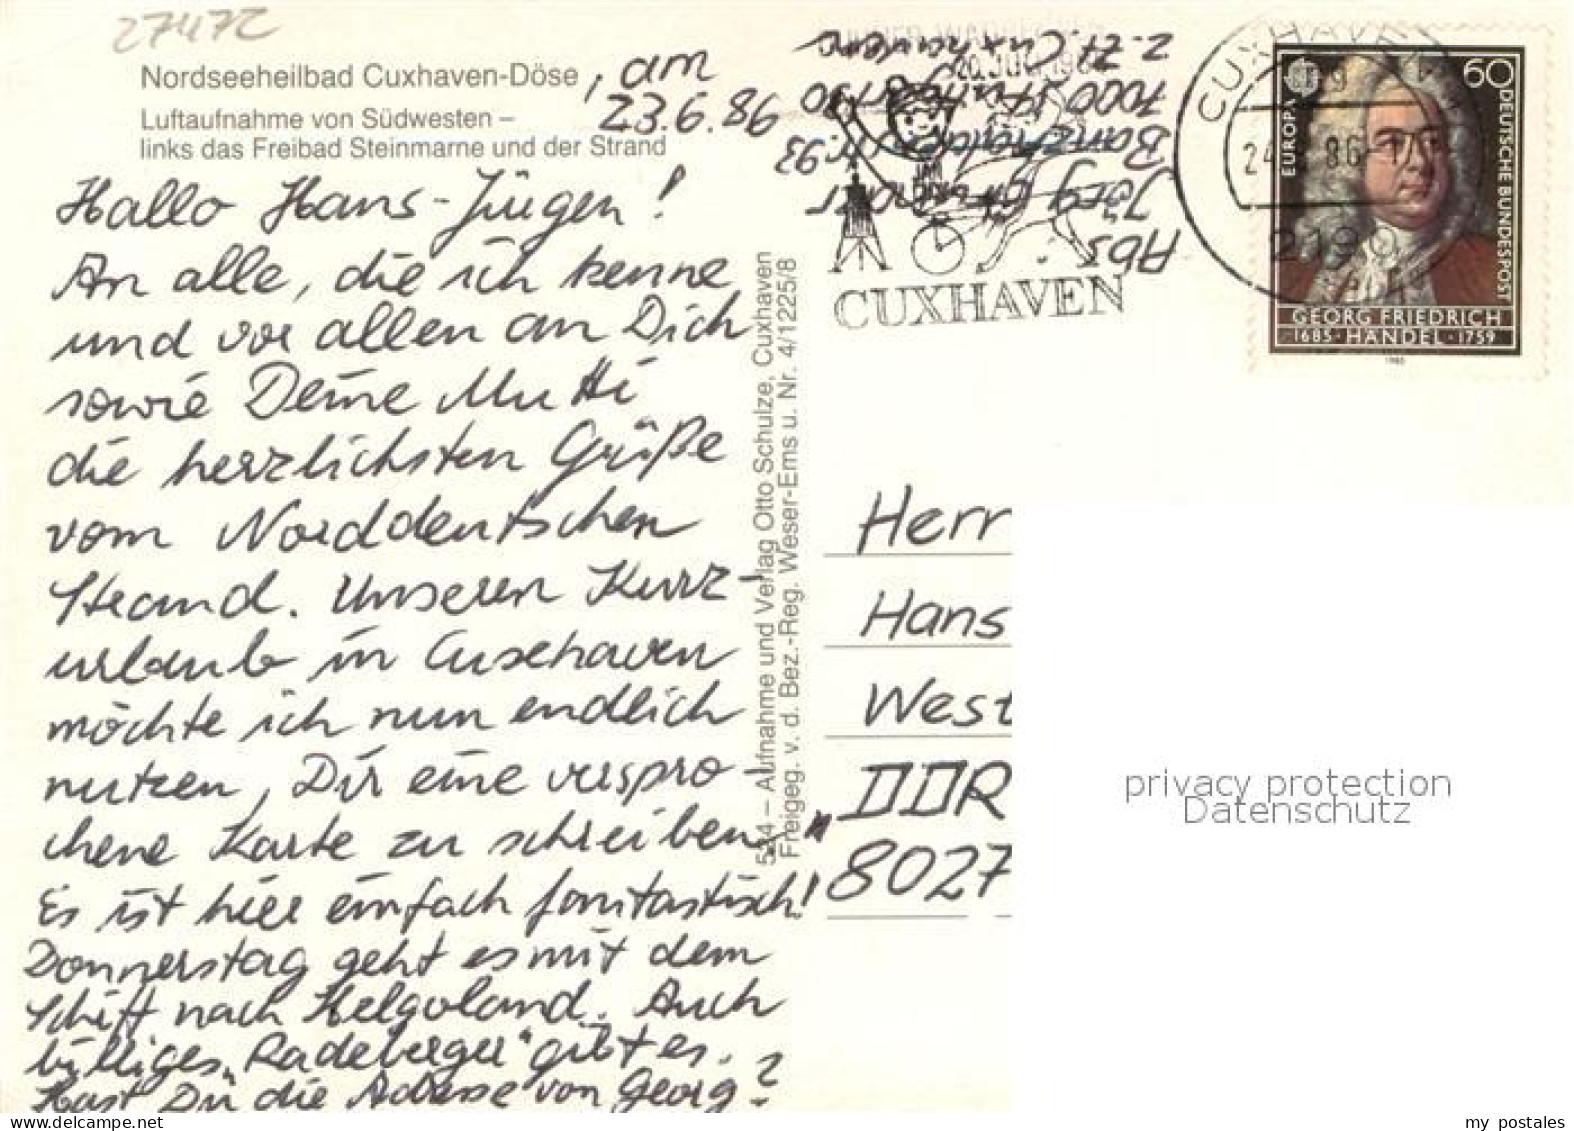 27472
Nordseeheilbad Cuxhaven-Döse, am
23.6.86
Luftaufnahme von Südwesten –
links das Freibad Steinmarne und der Strand
Hallo Hans-Jürgen!
An alle, die ich kenne
und vor allen an Dich
sowie Deine Mutti
die herzlichsten Grüße
vom Norddeutschen
Strand. Unseren Kurz-
urlaub in Cuxhaven
möchte ich nun endlich
nutzen, Dir eine verspro-
chene Karte zu schreiben.
Es ist hier einfach fantastisch!
Donnerstag geht es mit dem
Schiff nach Helgoland. Auch
billiges „Radeberger“ gibt es.
Hast Du die Adresse von Georg?
534 – Aufnahme und Verlag Otto Schulze, Cuxhaven
Freigeg. v. d. Bez.-Reg. Weser-Ems u. Nr. 4/1225/8
Abs.:
Jörg
Nr. 93
7000 Stuttgart 30
z. Zt. Cuxhaven
CUXHAVEN
CUXHAVEN
2190
EUROPA
60
DEUTSCHE BUNDESPOST
GEORG FRIEDRICH
1685 · HÄNDEL · 1759
1985
Herr
Hans
West
DDR
8027
privacy protection
Datenschutz
www.delcampe.net
my_postales